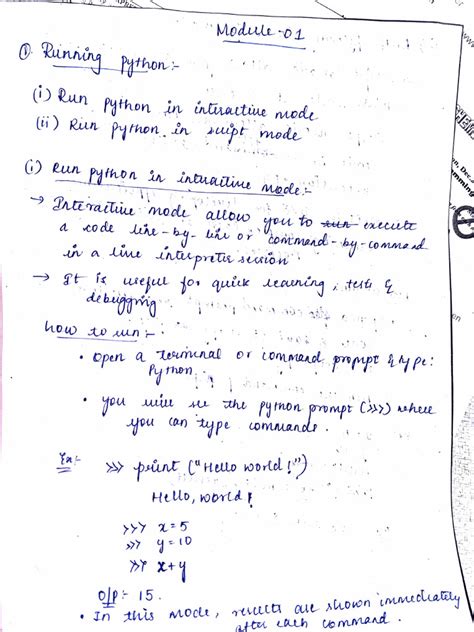 Module-01
① Running python:-
(i) Run python in interactive mode
(ii) Run python in script mode
(i) Run python in interactive mode:-
→ Interactive mode allow you to run execute
a code line-by-line or command-by-command
in a line interpreter session
→ It is useful for quick learning, tests &
debugging
How to run:-
• open a terminal or command prompt & type:
Python.
• you will see the python prompt (>>>) where
you can type commands.
Ex:- >>> print ("Hello world!")
Hello, world!
>>> x=5
>>> y=10
>>> x+y
O/P:- 15.
• In this mode, results are shown immediately
after each command.